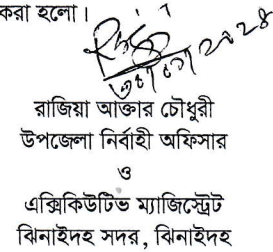 করা হলো।
৩০/০৭/২০২৪
রাজিয়া আক্তার চৌধুরী
উপজেলা নির্বাহী অফিসার
ও
এক্সিকিউটিভ ম্যাজিস্ট্রেট
ঝিনাইদহ সদর, ঝিনাইদহ